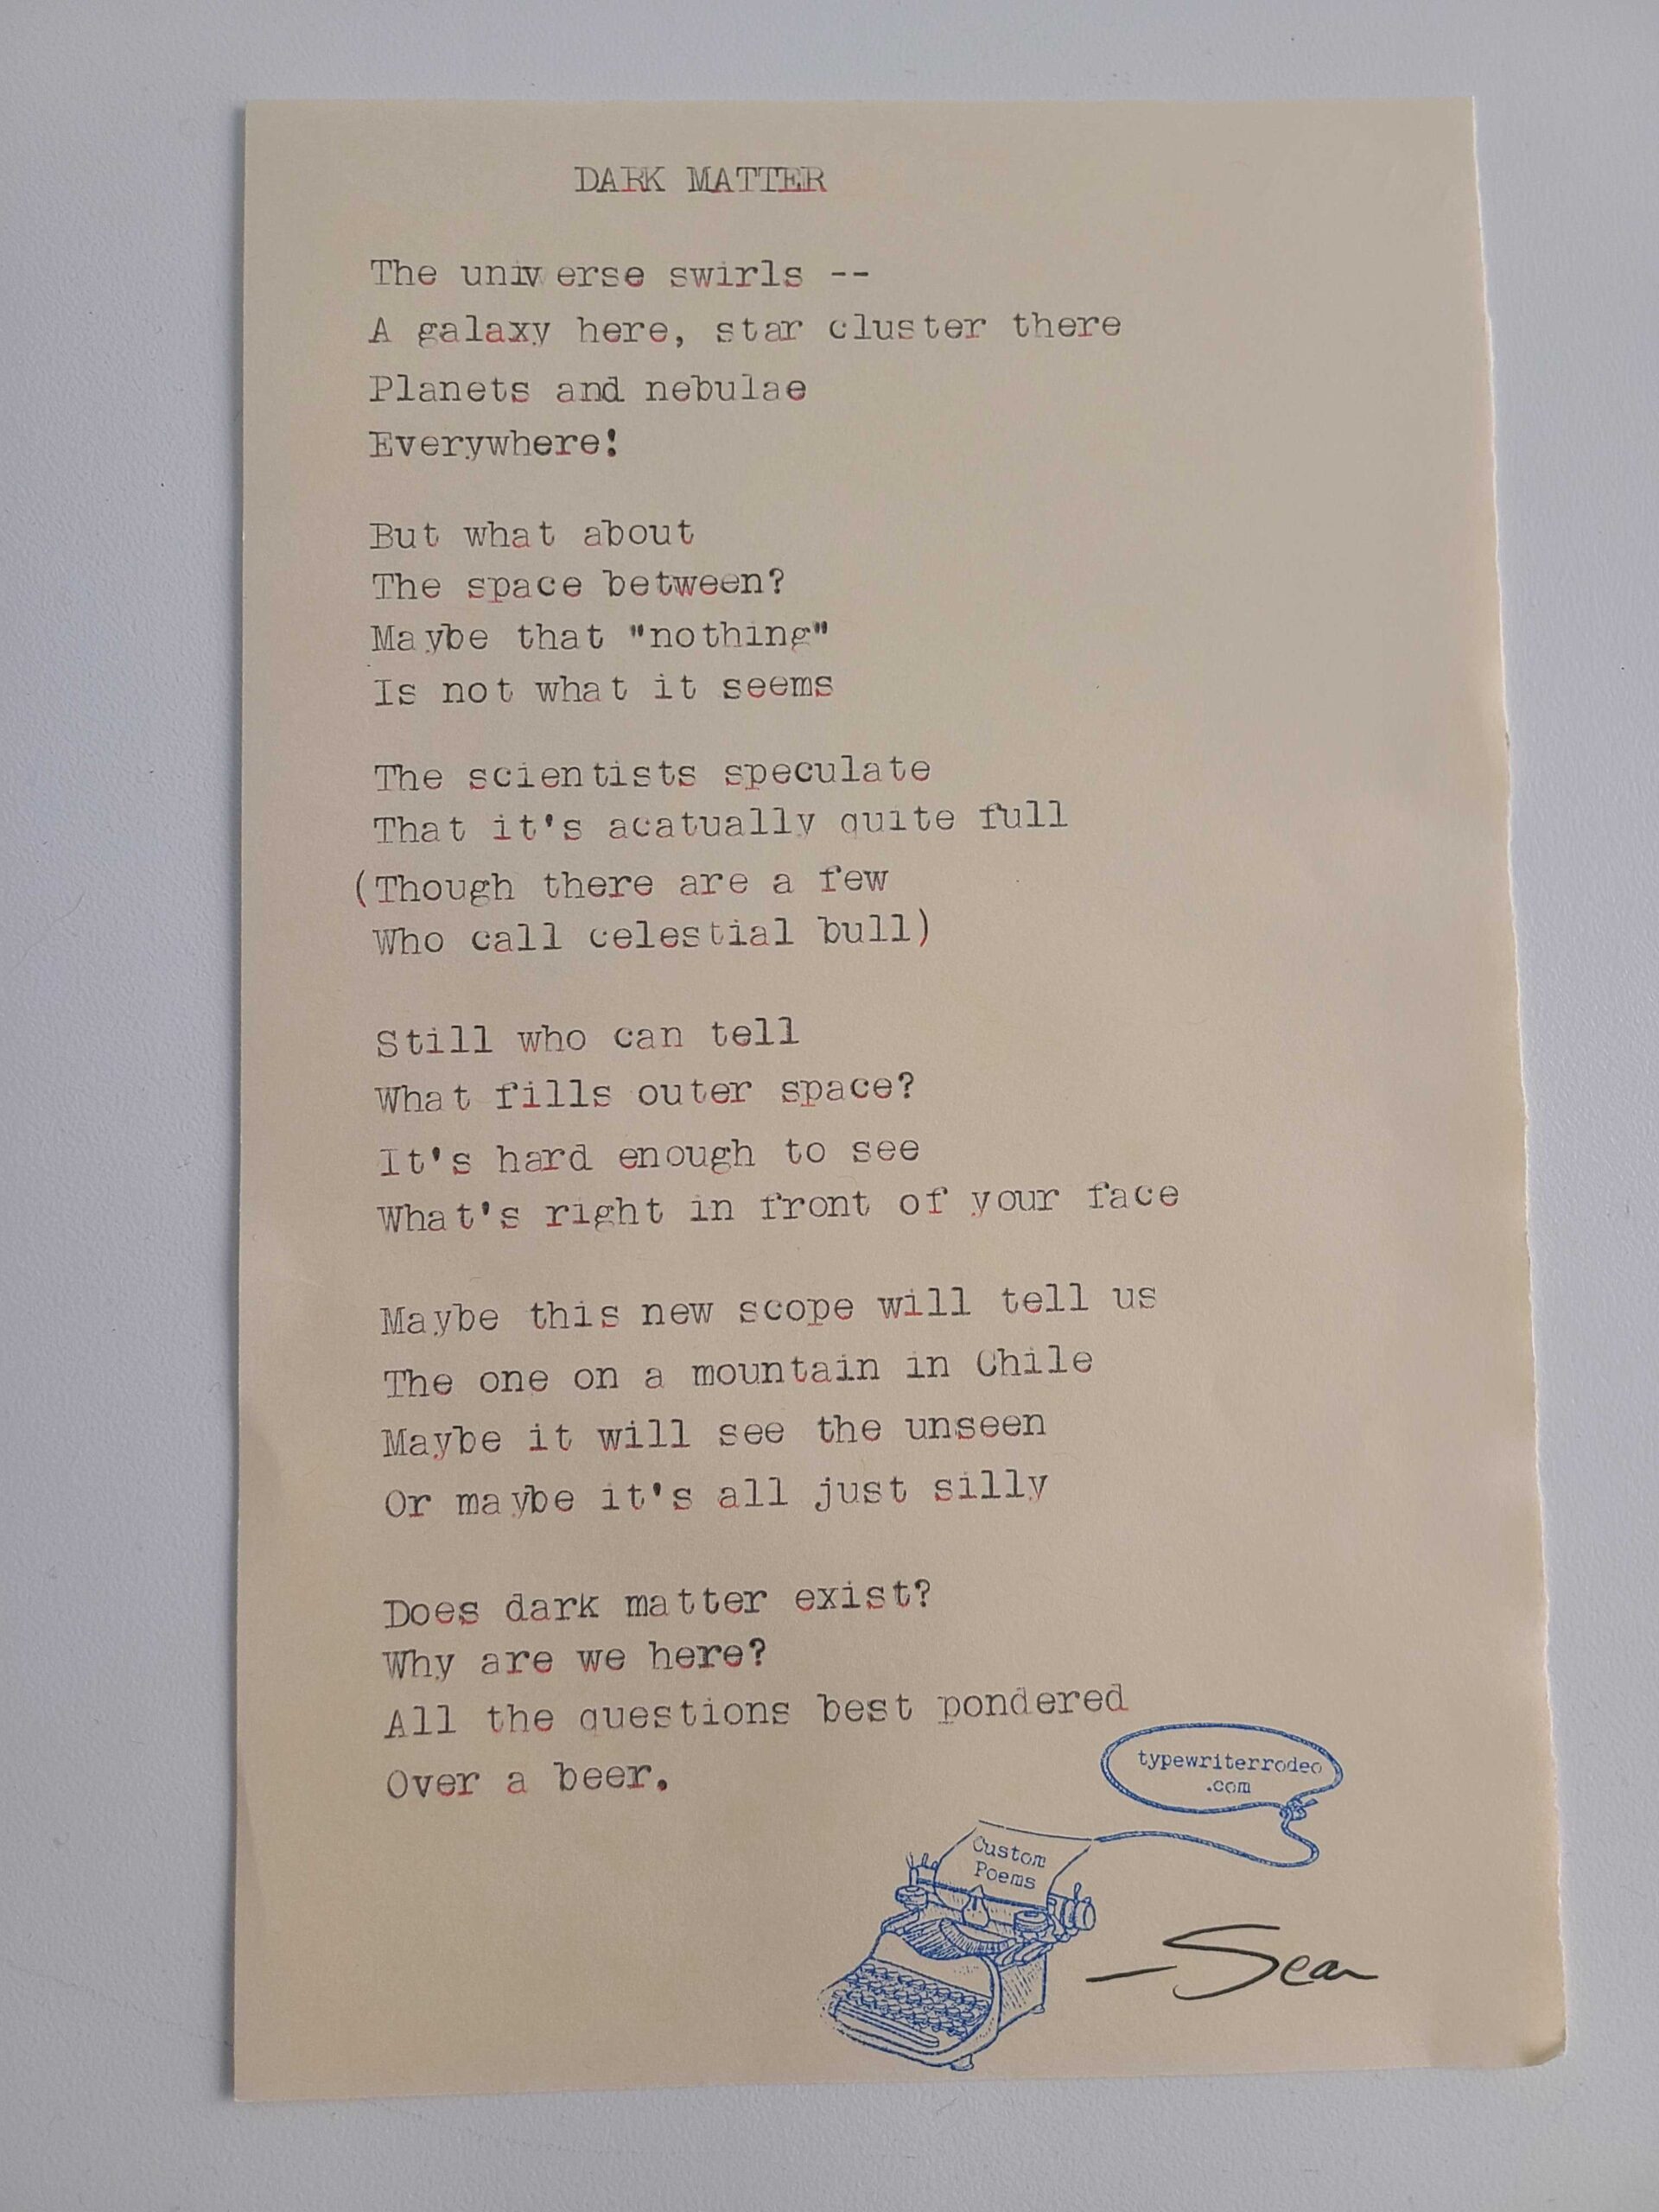 DARK MATTER
The universe swirls --
A galaxy here, star cluster there
Planets and nebulae
Everywhere!
But what about
The space between?
Maybe that "nothing"
Is not what it seems
The scientists speculate
That it's acatually quite full
(Though there are a few
Who call celestial bull)
Still who can tell
What fills outer space?
It's hard enough to see
What's right in front of your face
Maybe this new scope will tell us
The one on a mountain in Chile
Maybe it will see the unseen
Or maybe it's all just silly
Does dark matter exist?
Why are we here?
All the questions best pondered
Over a beer.
typewriterrodeo
.com
Custom
Poems
—Sean